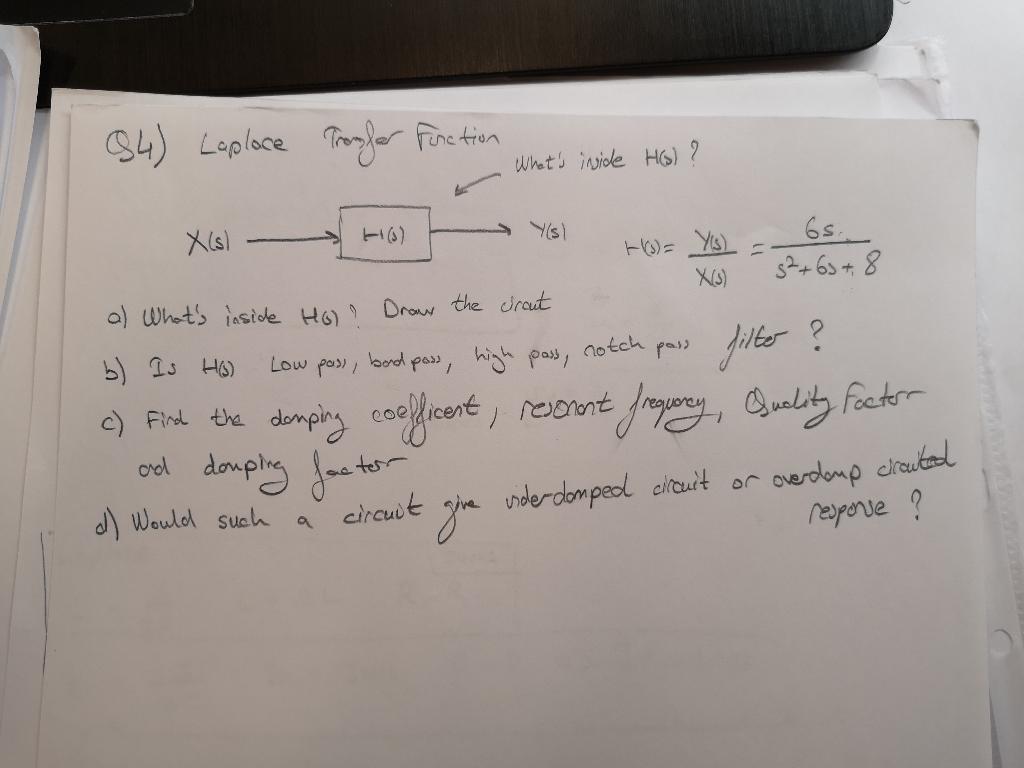 Q4) Laplace Transfer Function
What's inside H(s) ?
X(s) H(s) Y(s) H(s) = Y(s)/X(s) = 6s/(s²+6s+8)
a) What's inside H(s)? Draw the circut
b) Is H(s) Low pass, band pass, high pass, notch pass filter ?
c) Find the damping coefficent, resonant frequency, Quality Factor
and damping factor
d) Would such a circuit give underdamped circuit or overdamp circuited
response ?